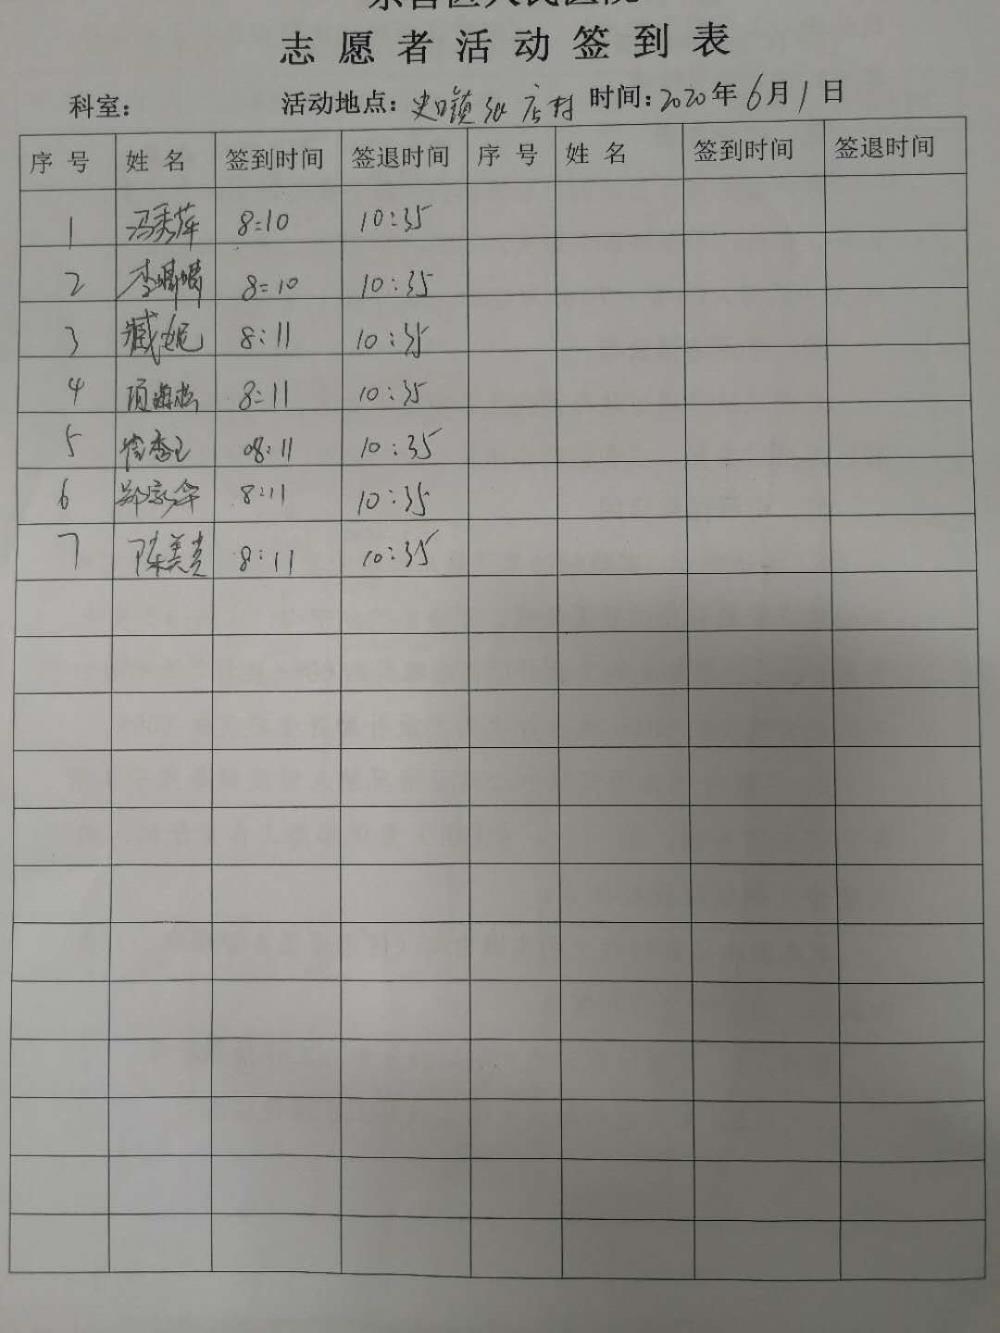 志愿者活动签到表
科室： 活动地点：史口镇 店村 时间：2020年6月1日
序号 姓名 签到时间 签退时间 序号 姓名 签到时间 签退时间
1 冯秀萍 8:10 10:35
2 李晴晴 8:10 10:35
3 臧妮 8:11 10:35
4 项海燕 8:11 10:35
5 08:11 10:35
6 郑家华 8:11 10:35
7 陈美贵 8:11 10:35